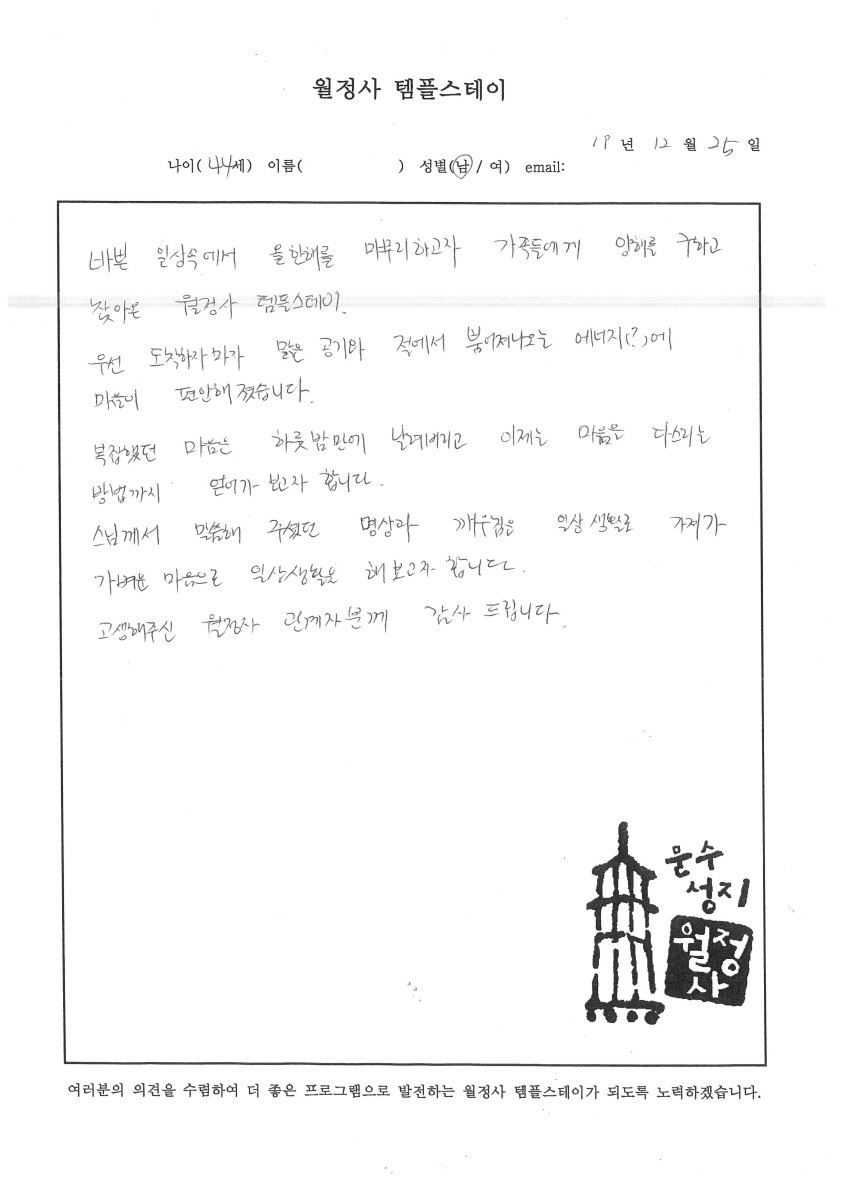 월정사 템플스테이
19년 12월 25일
나이(44세) 이름( ) 성별(남/여) email:
바쁜 일상속에서 올한해를 마무리하고자 가족들에게 양해를 구하고
찾아온 월정사 템플스테이.
우선 도착하자마자 맑은 공기와 적에서 뿜어져나오는 에너지(?)에
마음이 편안해졌습니다.
복잡했던 마음은 하룻밤만에 날려버리고 이제는 마음을 다스리는
방법까지 얻어가 보고자 합니다.
스님께서 말씀해 주셨던 명상과 깨우침을 일상생활로 가져가
가벼운 마음으로 일상생활을 해보고자 합니다.
고생해주신 월정사 관계자분께 감사 드립니다.
문수
성지
월정
사
여러분의 의견을 수렴하여 더 좋은 프로그램으로 발전하는 월정사 템플스테이가 되도록 노력하겠습니다.